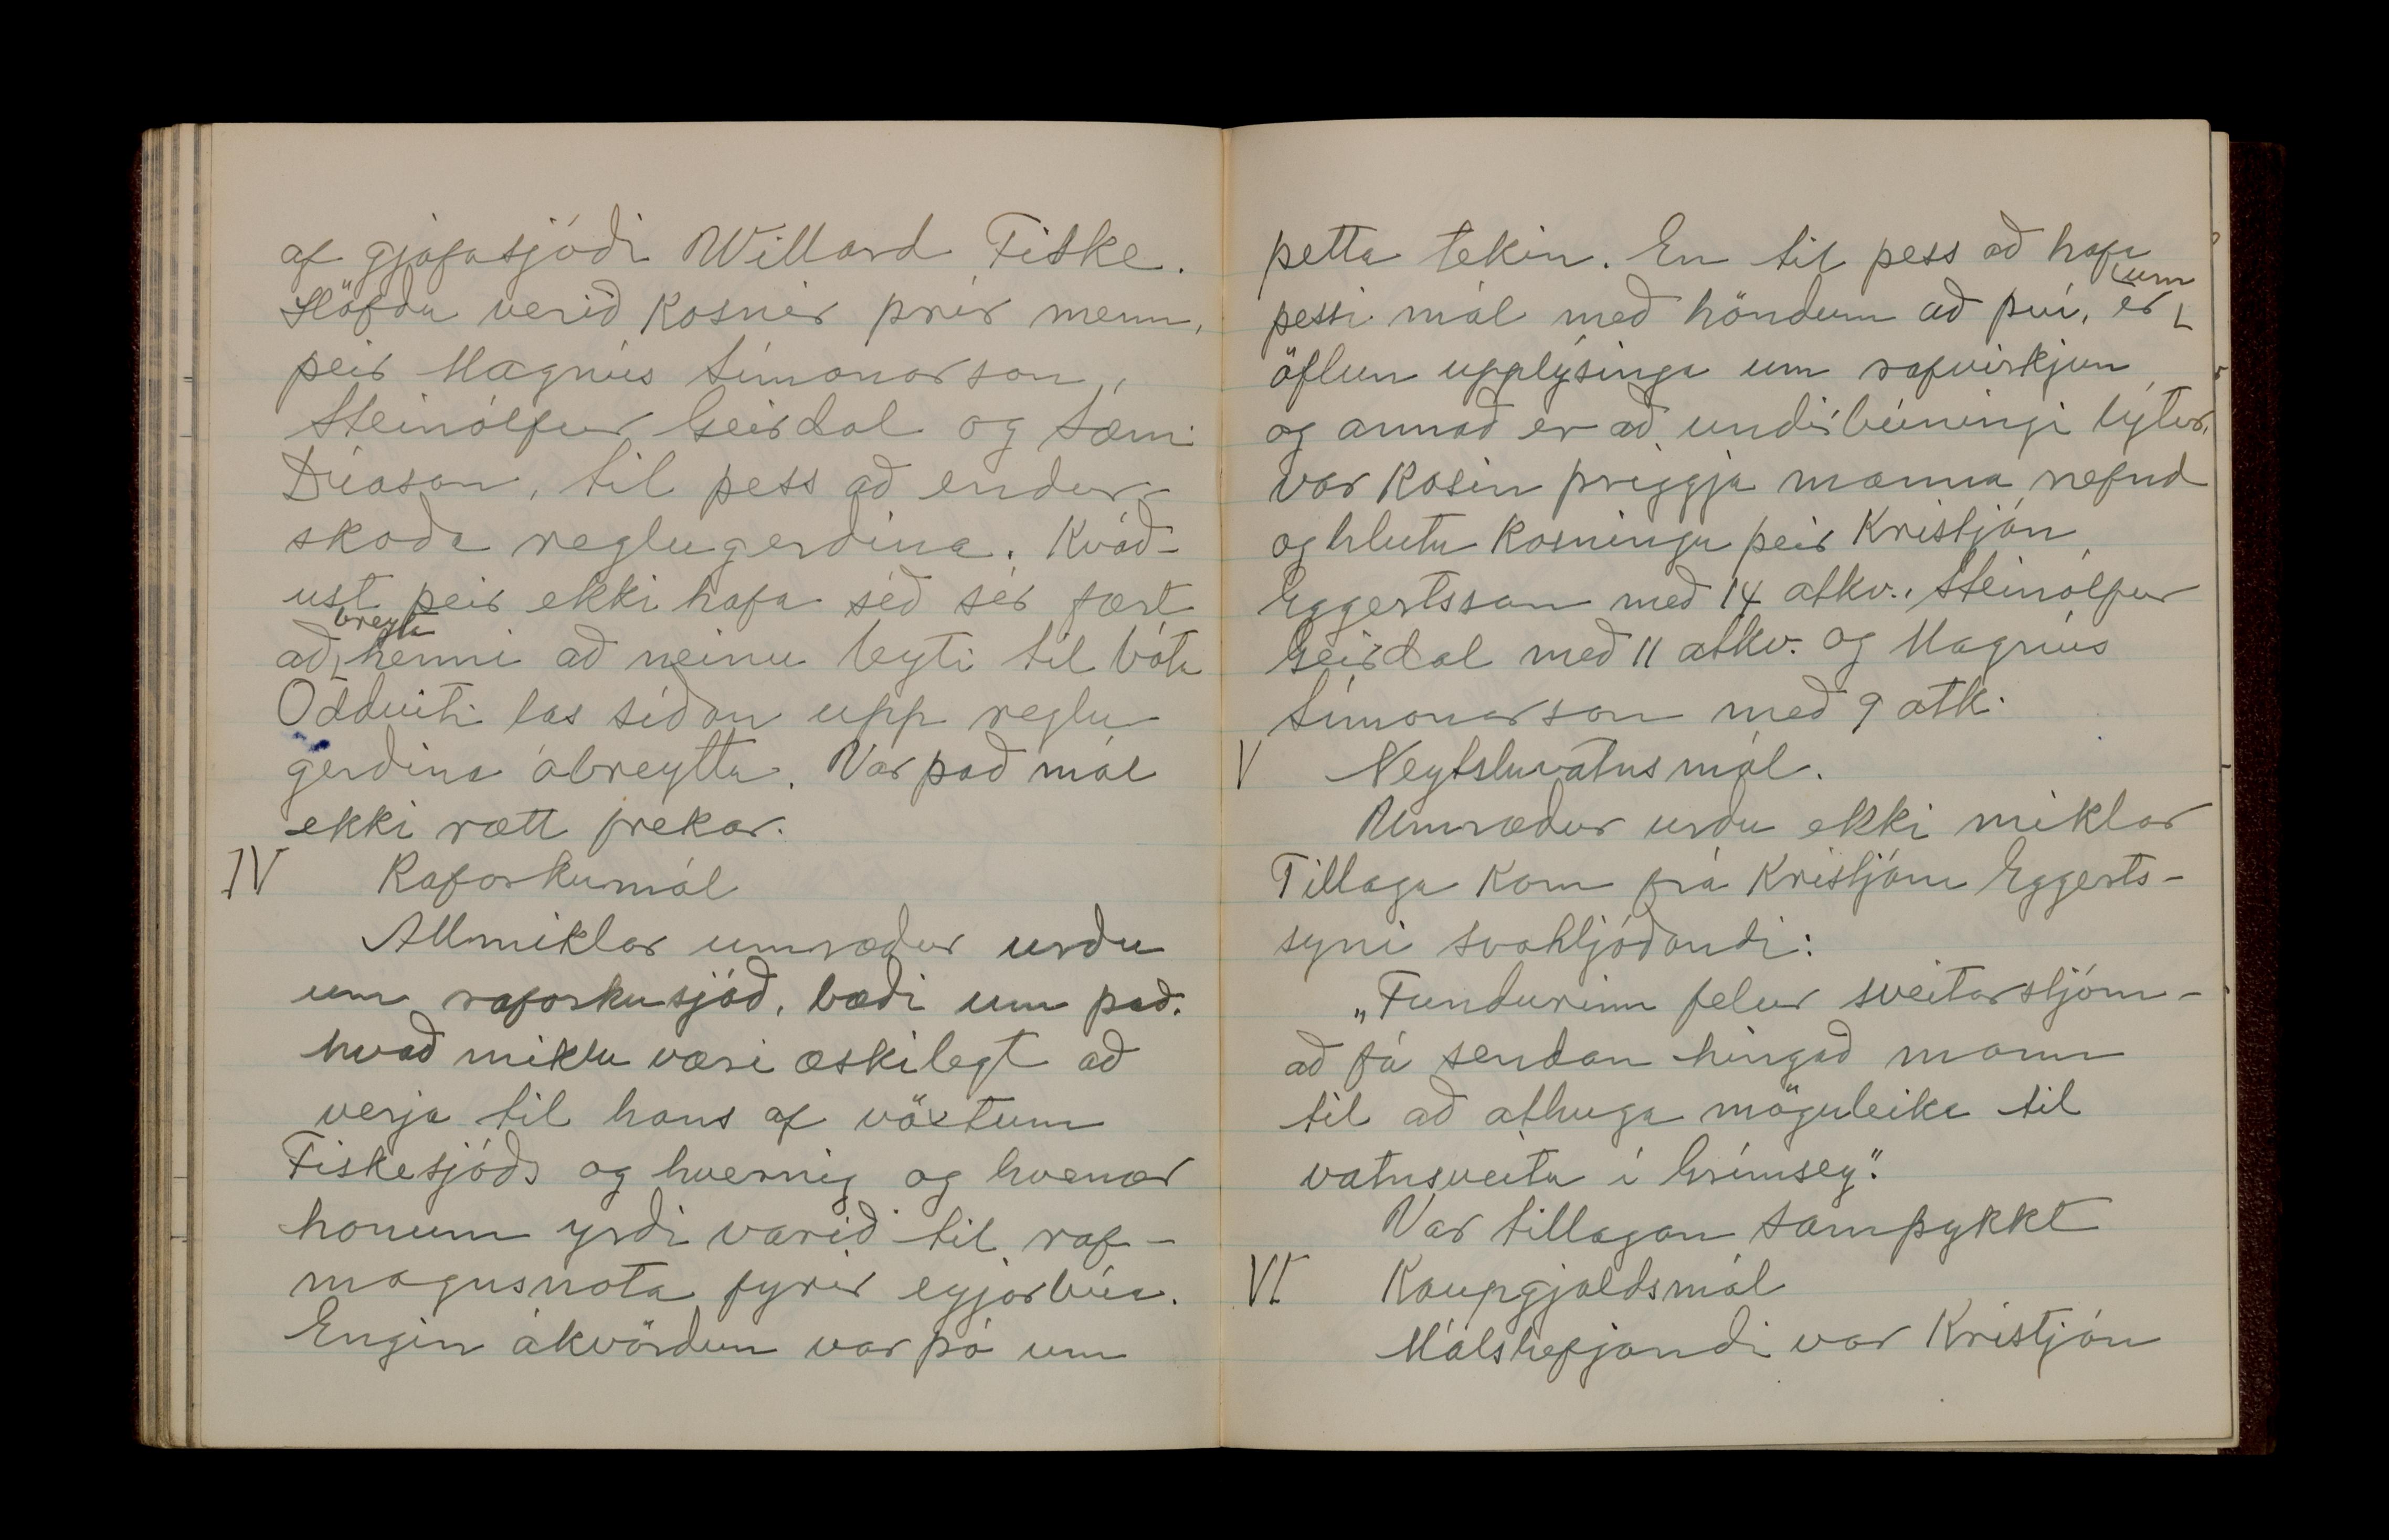 af gjafasjóði Willard Fiske.
Höfðu verið kosnir þrír menn,
þeir Magnús Símonarson,
Steinólfur Geirdal og Sæm.
Díason, til þess að endur-
skoða reglugerðina. Kváð-
ust þeir ekki hafa séð sér fært
að breyta henni að neinu leyti til bóta
Oddviti las síðan upp reglu
gerðina óbreytta. Var það mál
ekki rætt frekar.
IV Raforkumál
Allmiklar umræður urðu
um raforkusjóð, bæði um það.
hvað miklu væri æskilegt að
verja til hans af vöxtum
Fiskesjóðs og hvernig og hvenær
honum yrði varið til raf-
magnsnota fyrir eyjarbúa.
Engin ákvörðun var þó um
þetta tekin. En til þess að hafa
þessi mál með höndum að því, er um
öflun upplýsinga um rafvirkjun
og annað er að undirbúningi lýtur,
var kosin þriggja manna nefnd
og hlutu kosningu þeir Kristján
Eggertsson með 14 atkv., Steinólfur
Geirdal með 11 atkv. og Magnús
Símonarson með 9 atk.
V Neytsluvatnsmál.
Umræður urðu ekki miklar
Tillaga kom frá Kristjáni Eggerts-
syni svohljóðandi:
„Fundurinn felur sveitarstjórn-
að fá sendan hingað mann
til að athuga möguleika til
vatnsveitu í Grímsey".
Var tillagan samþykkt
VI Kaupgjaldsmál
Málshefjandi var Kristján